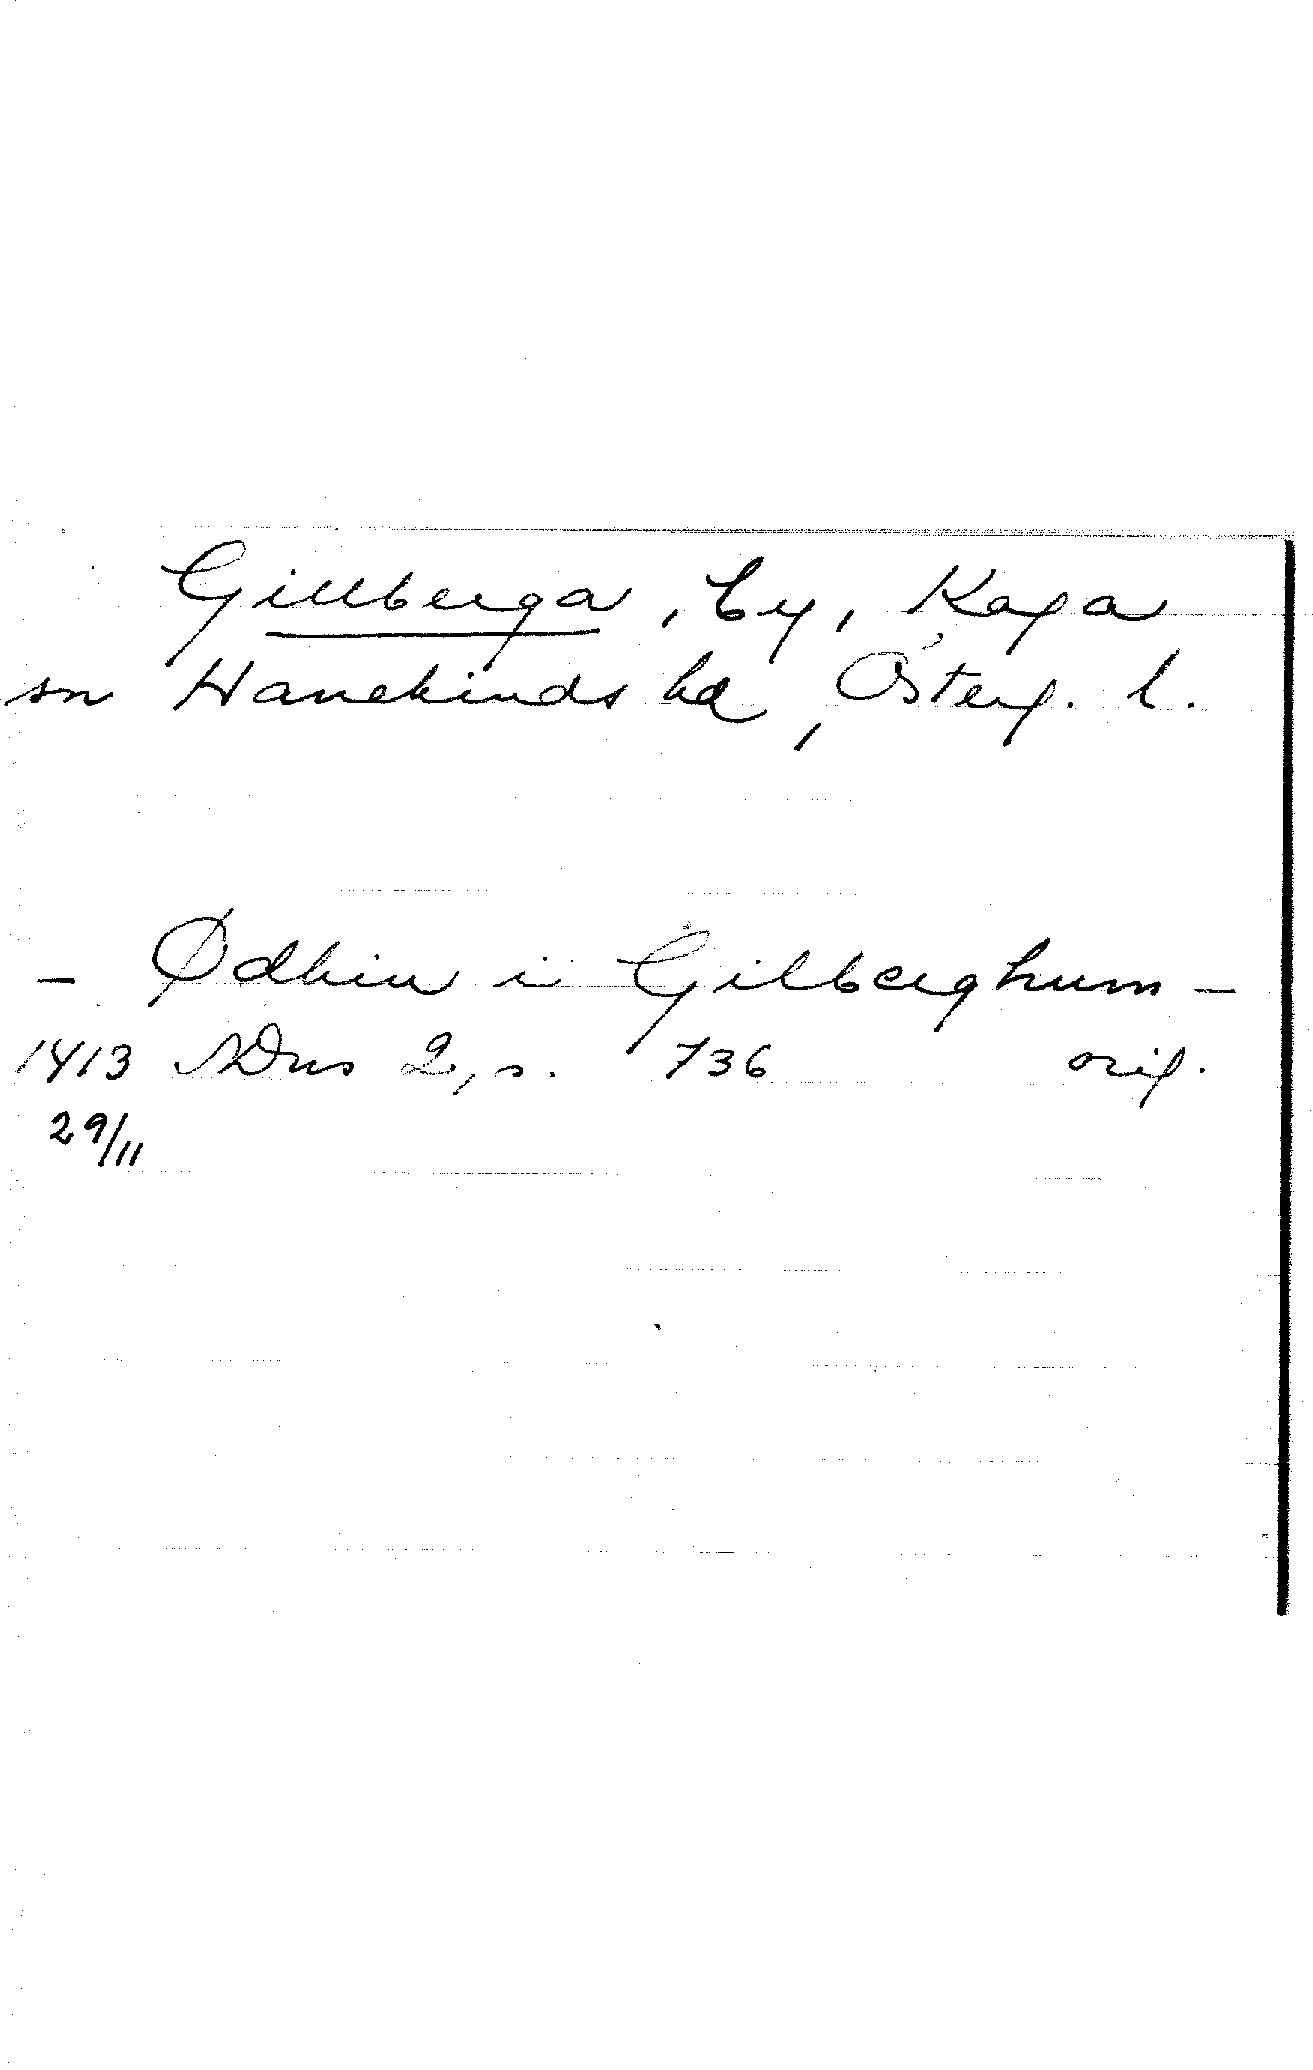 Gillberga, by, Kaga
sn Hanekinds hd, Österg. l.
– Ødhin i Gilberghum –
1413 SDns 2, s. 736 orig.
29/11